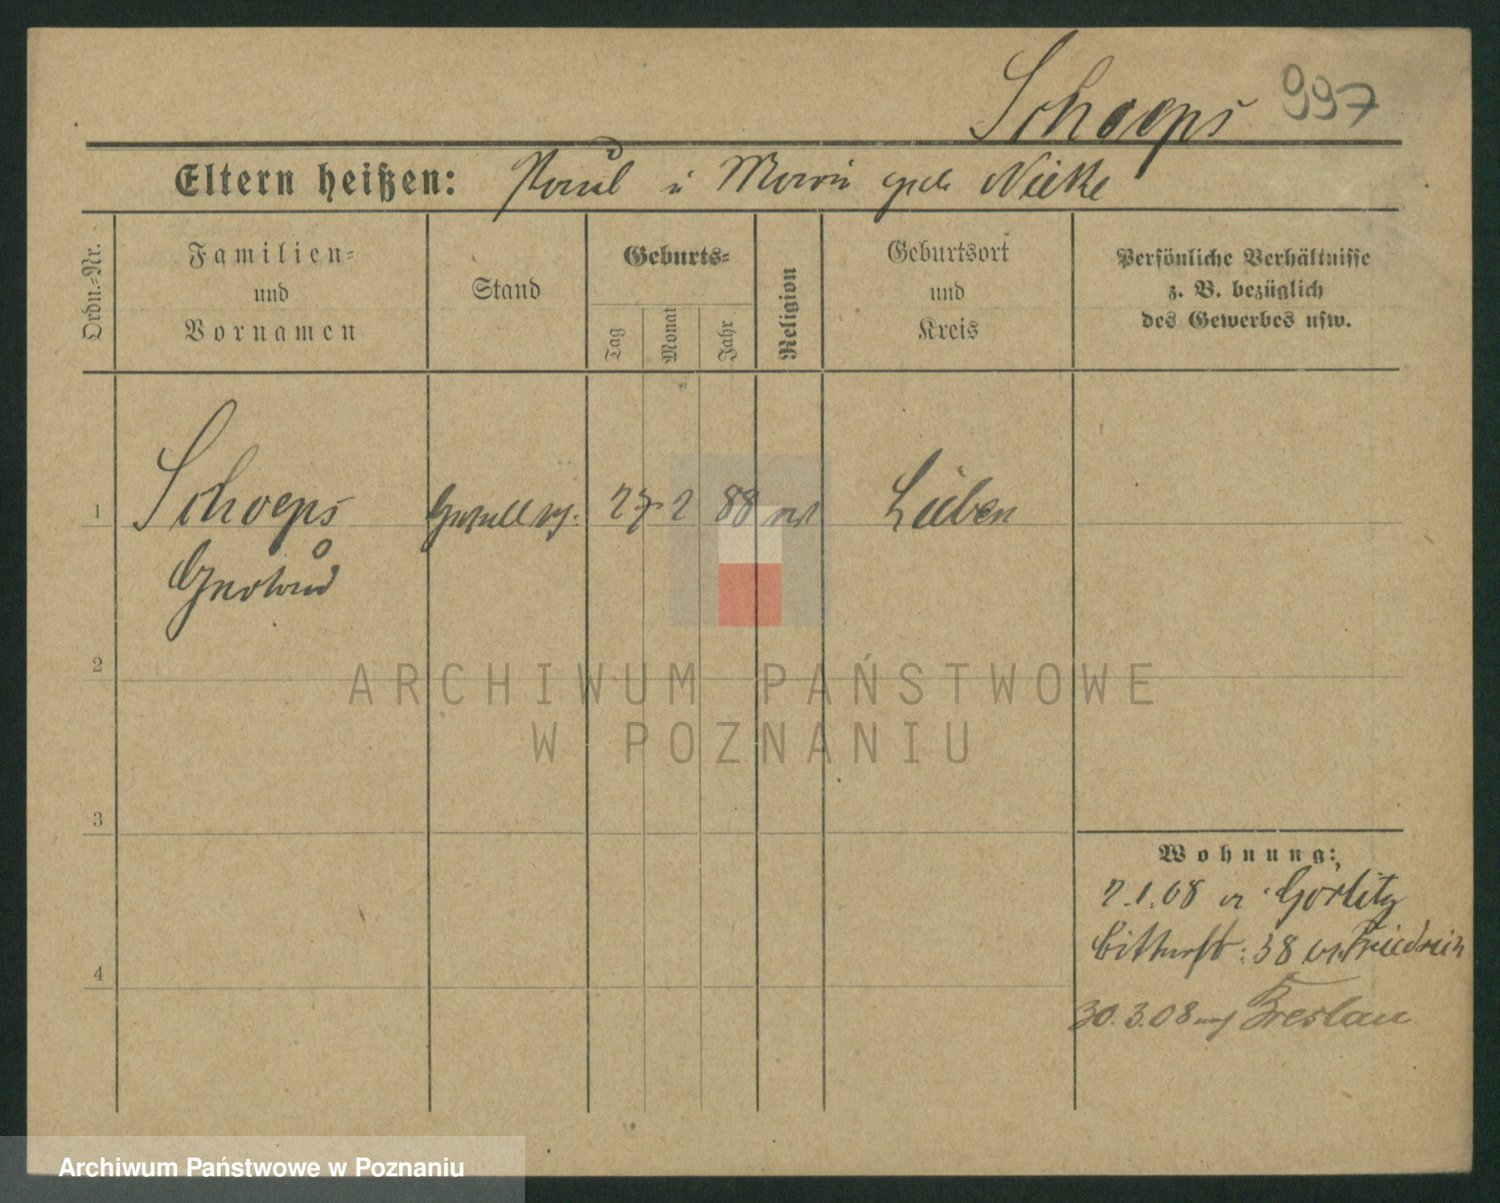 Schoeps 997
Eltern heißen: Paul u Marie geb. Nietke
Ordn.=Nr.
Familien=
und
Vornamen
Stand
Geburts=
Tag
Monat
Jahr
Religion
Geburtsort
und
Kreis
Persönliche Verhältnisse
z. B. bezüglich
des Gewerbes usw.
1 Schoeps 27 2 88 Lüben
Gertrud
2
ARCHIWUM PAŃSTWOWE
W POZNANIU
3
4
Wohnung:
7.1.08 Görlitz
38 Friedrich
30.3.08 Breslau
Archiwum Państwowe w Poznaniu